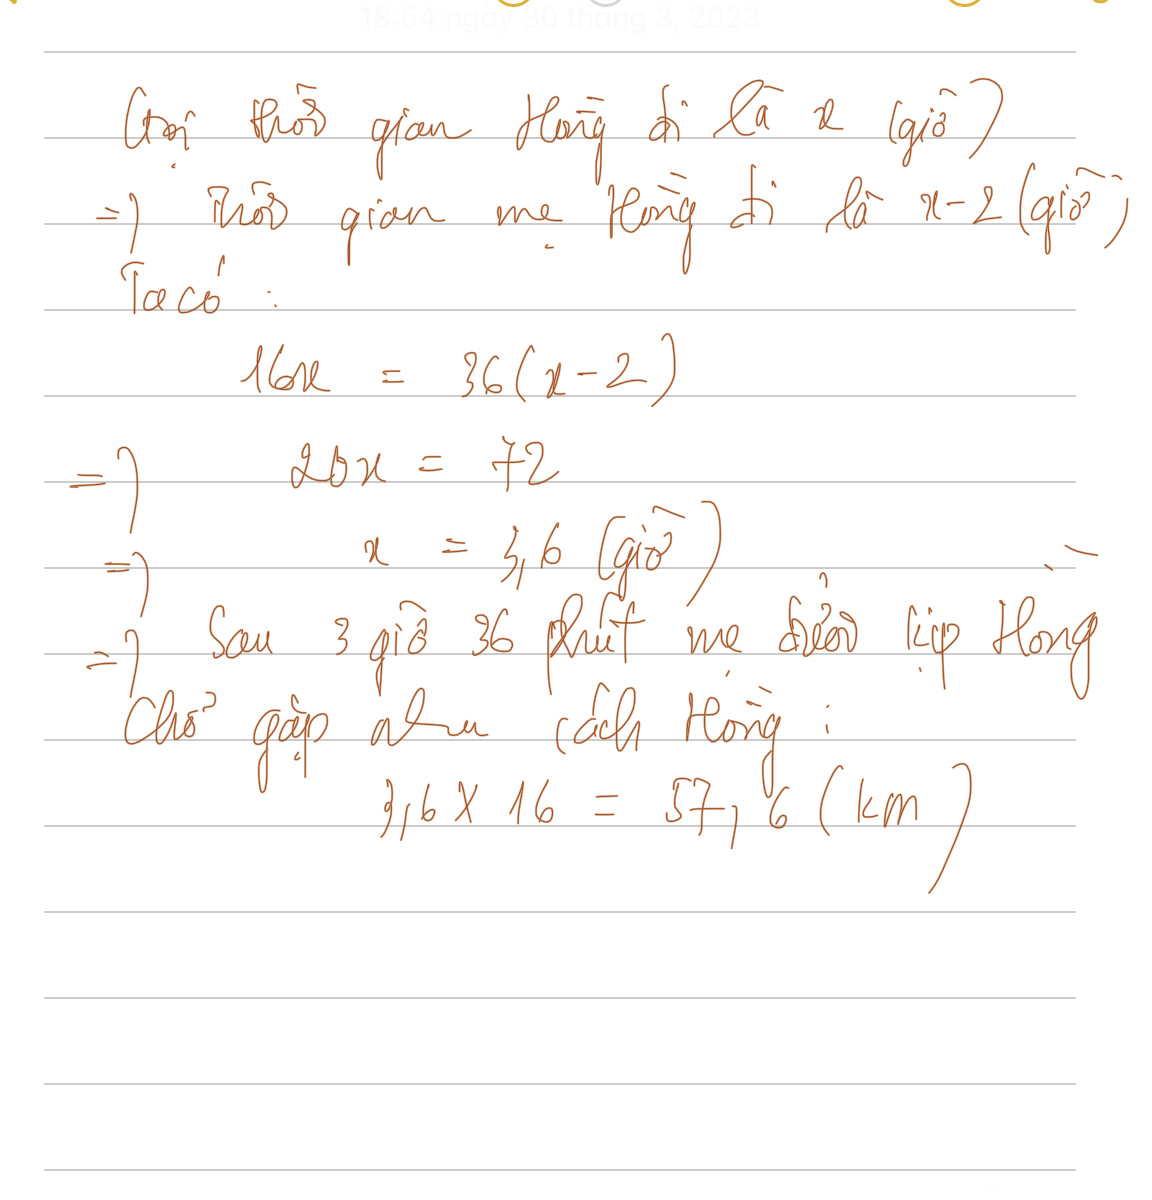 18:54 ngày 30 tháng 3, 2023
Gọi thời gian Hồng đi là x (giờ)
=> Thời gian mẹ Hồng đi là x-2 (giờ)
Ta có :
16x = 36(x-2)
=> 20x = 72
=> x = 3,6 (giờ)
=> Sau 3 giờ 36 phút mẹ đuổi kịp Hồng
Chỗ gặp nhau cách Hồng :
3,6 x 16 = 57,6 (km)